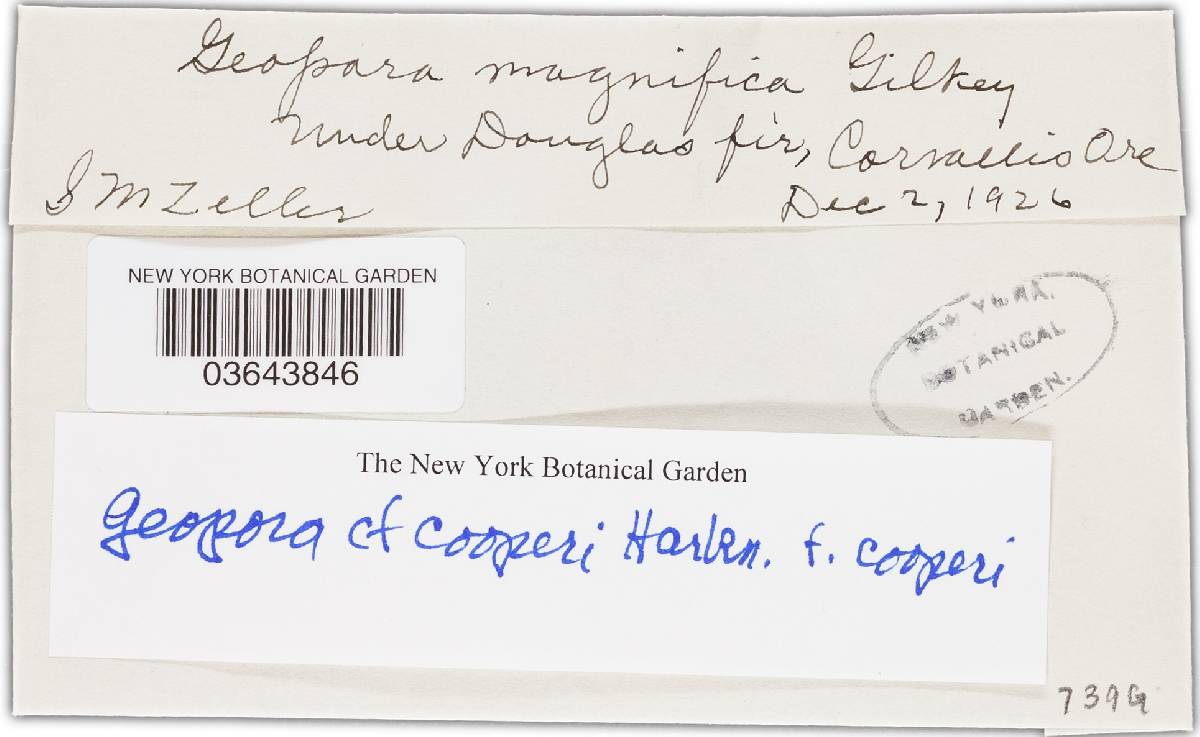 Geopara magnifica Gilkey
under Douglas fir, Corvallis Ore
S M Zeller
Dec 2, 1926
NEW YORK BOTANICAL GARDEN
03643846
NEW YORK.
BOTANICAL
GARDEN.
The New York Botanical Garden
Geopora cf cooperi Harkn. f. cooperi
739G